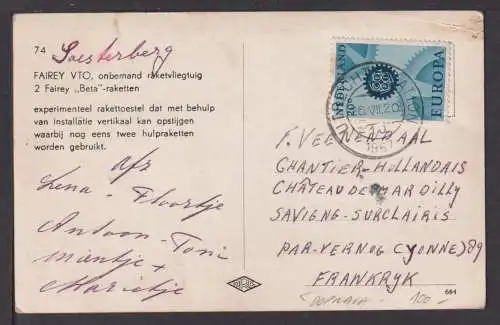 74 Soesterberg
FAIREY VTO, onbemand raketvliegtuig
2 Fairey „Beta"-raketten
experimenteel rakettoestel dat met behulp
van installatie vertikaal kan opstijgen
waarbij nog eens twee hulpraketten
worden gebruikt.
afz
Lena - Floortje
Antoon - Toni
Mientje +
Marietje
NEDERLAND
20c
EUROPA
1967
F. VEENENDAAL
CHANTIER-HOLLANDAIS
CHÂTEAU DE MAROILLY
SAVIGNG-SURCLAIRIS
PAR-VERNOG (YONNE) 89
FRANKRYK
684
100-